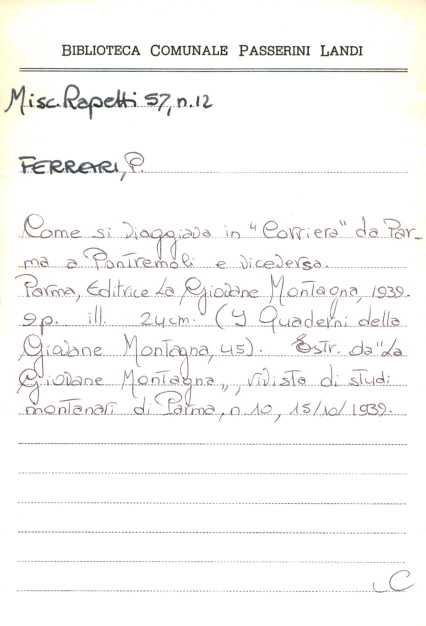 BIBLIOTECA COMUNALE PASSERINI LANDI
Misc. Rapetti 57, n.12
FERRARI, P.
Come si viaggiava in "Corriera" da Par-
ma a Pontremoli e viceversa.
Parma, Editrice La Giovane Montagna, 1939.
9p. ill. 24cm. (I Quaderni della
Giovane Montagna, 45). Estr. da "La
Giovane Montagna", rivista di studi
montanari di Parma, n. 10, 15/10/1939.
C